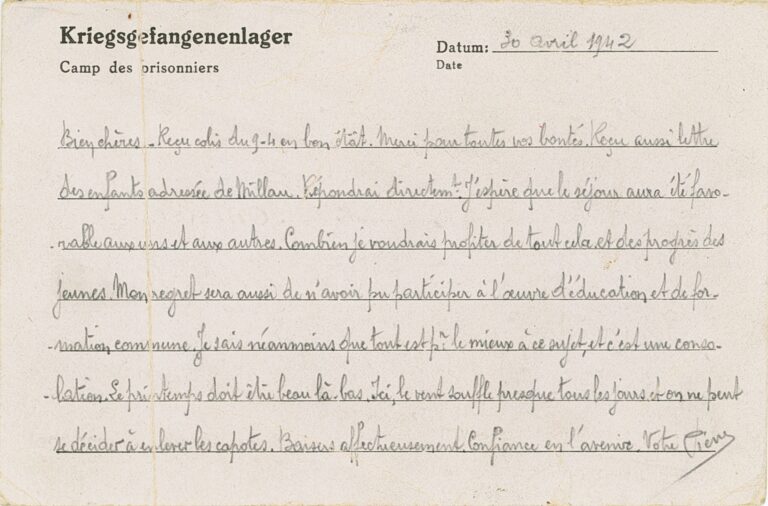 Kriegsgefangenenlager
Camp des prisonniers
Datum: 30 avril 1942
Date
Bien chères - Reçu colis du 9-4 en bon état. Merci pour toutes vos bontés. Reçu aussi lettre
des enfants adressée de Millau. Répondrai directemt. J'espère que le séjour aura été favo-
-rable aux uns et aux autres. Combien je voudrais profiter de tout cela et des progrès des
jeunes. Mon regret sera aussi de n'avoir pu participer à l'œuvre d'éducation et de for-
-mation commune. Je sais néanmoins que tout est pr le mieux à ce sujet, et c'est une conso-
-lation. Le printemps doit être beau là-bas. Ici, le vent souffle presque tous les jours et on ne peut
se décider à enlever les capotes. Baisers affectueusement. Confiance en l'avenir. Votre Pierre